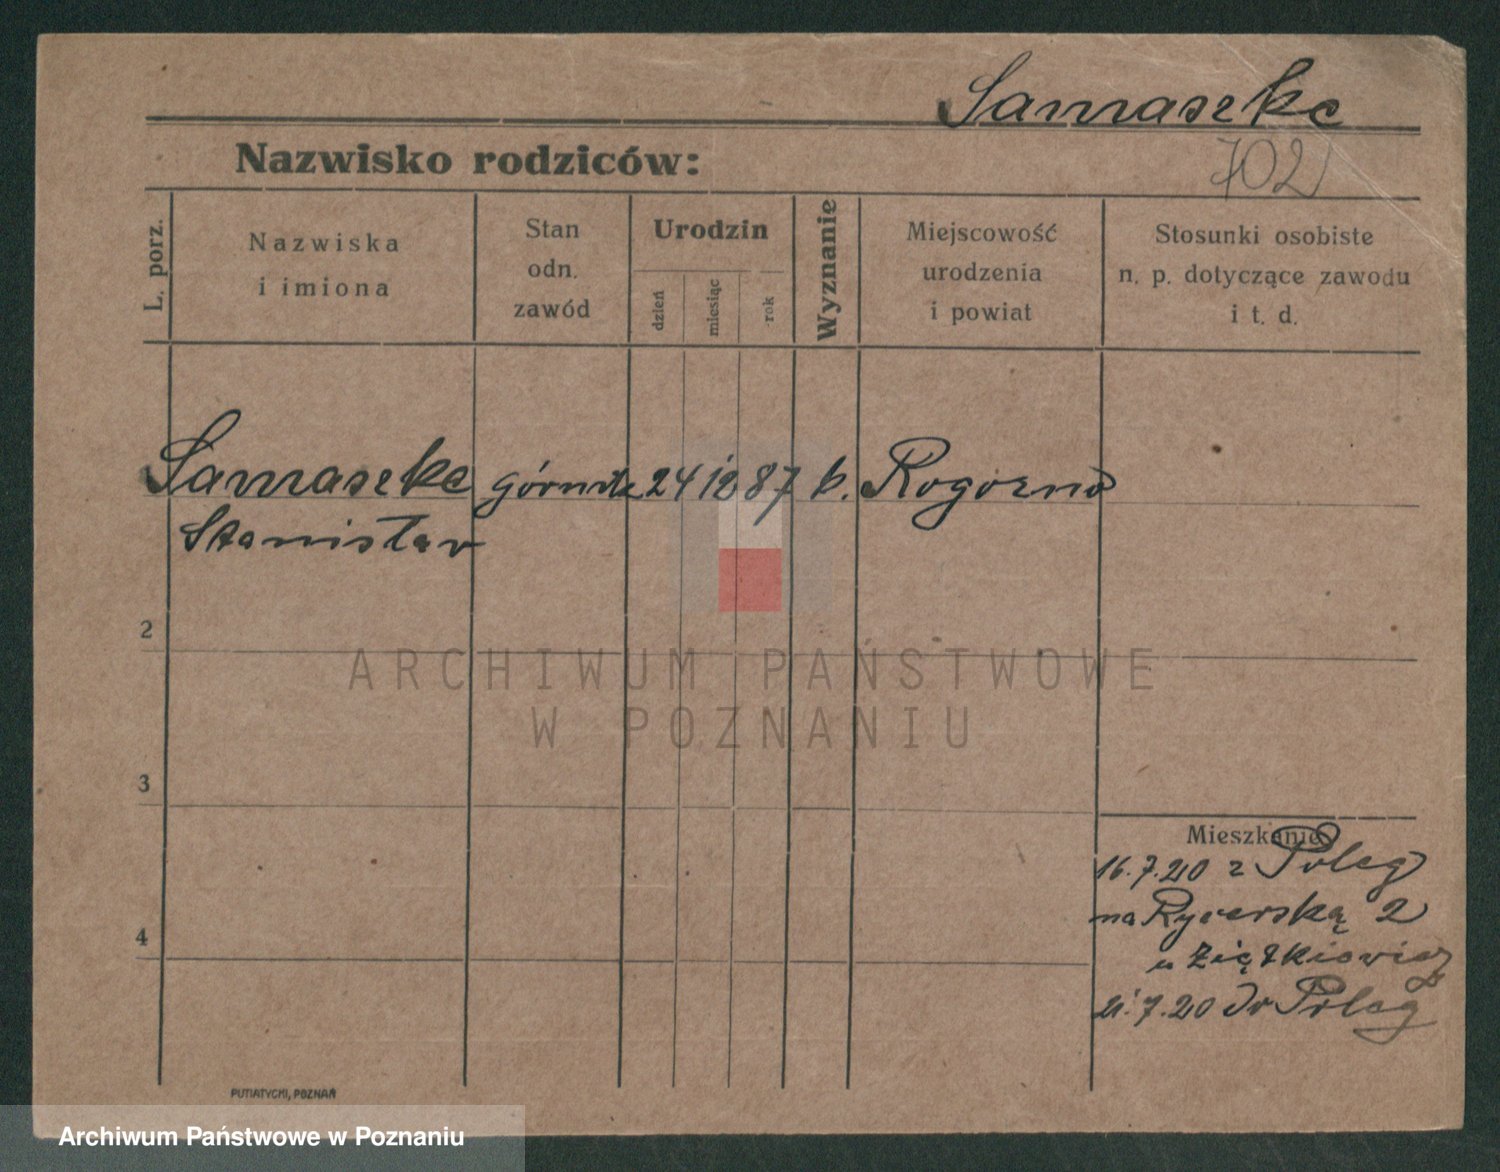 Samraszke
702
Nazwisko rodziców:
L. porz.
Nazwiska
i imiona
Stan
odn.
zawód
Urodzin
dzień
miesiąc
rok
Wyznanie
Miejscowość
urodzenia
i powiat
Stosunki osobiste
n. p. dotyczące zawodu
i t. d.
Samraszke górnik 24 12 87 k. Rogozno
Stanisław
2
ARCHIWUM PAŃSTWOWE
W POZNANIU
3
Mieszkanie
16.7.20 z Poleg
na Rycerską 2
u Ziętkiewicz
21.7.20 do Poleg
4
PUTIATYCKI, POZNAŃ
Archiwum Państwowe w Poznaniu